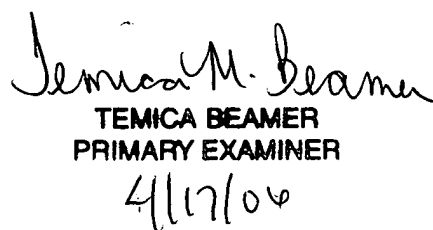 Temica M. Beamer
TEMICA BEAMER
PRIMARY EXAMINER
4/17/06